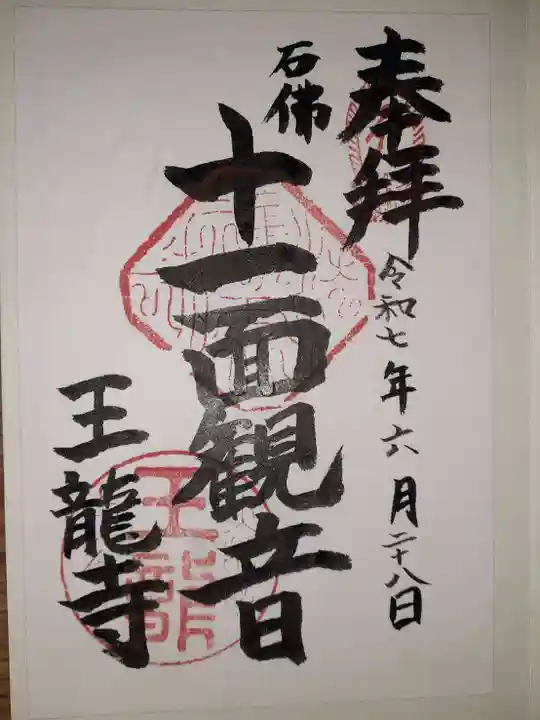 奉拝
令和七年六月二十八日
石佛
十一面観音
王龍寺
王龍